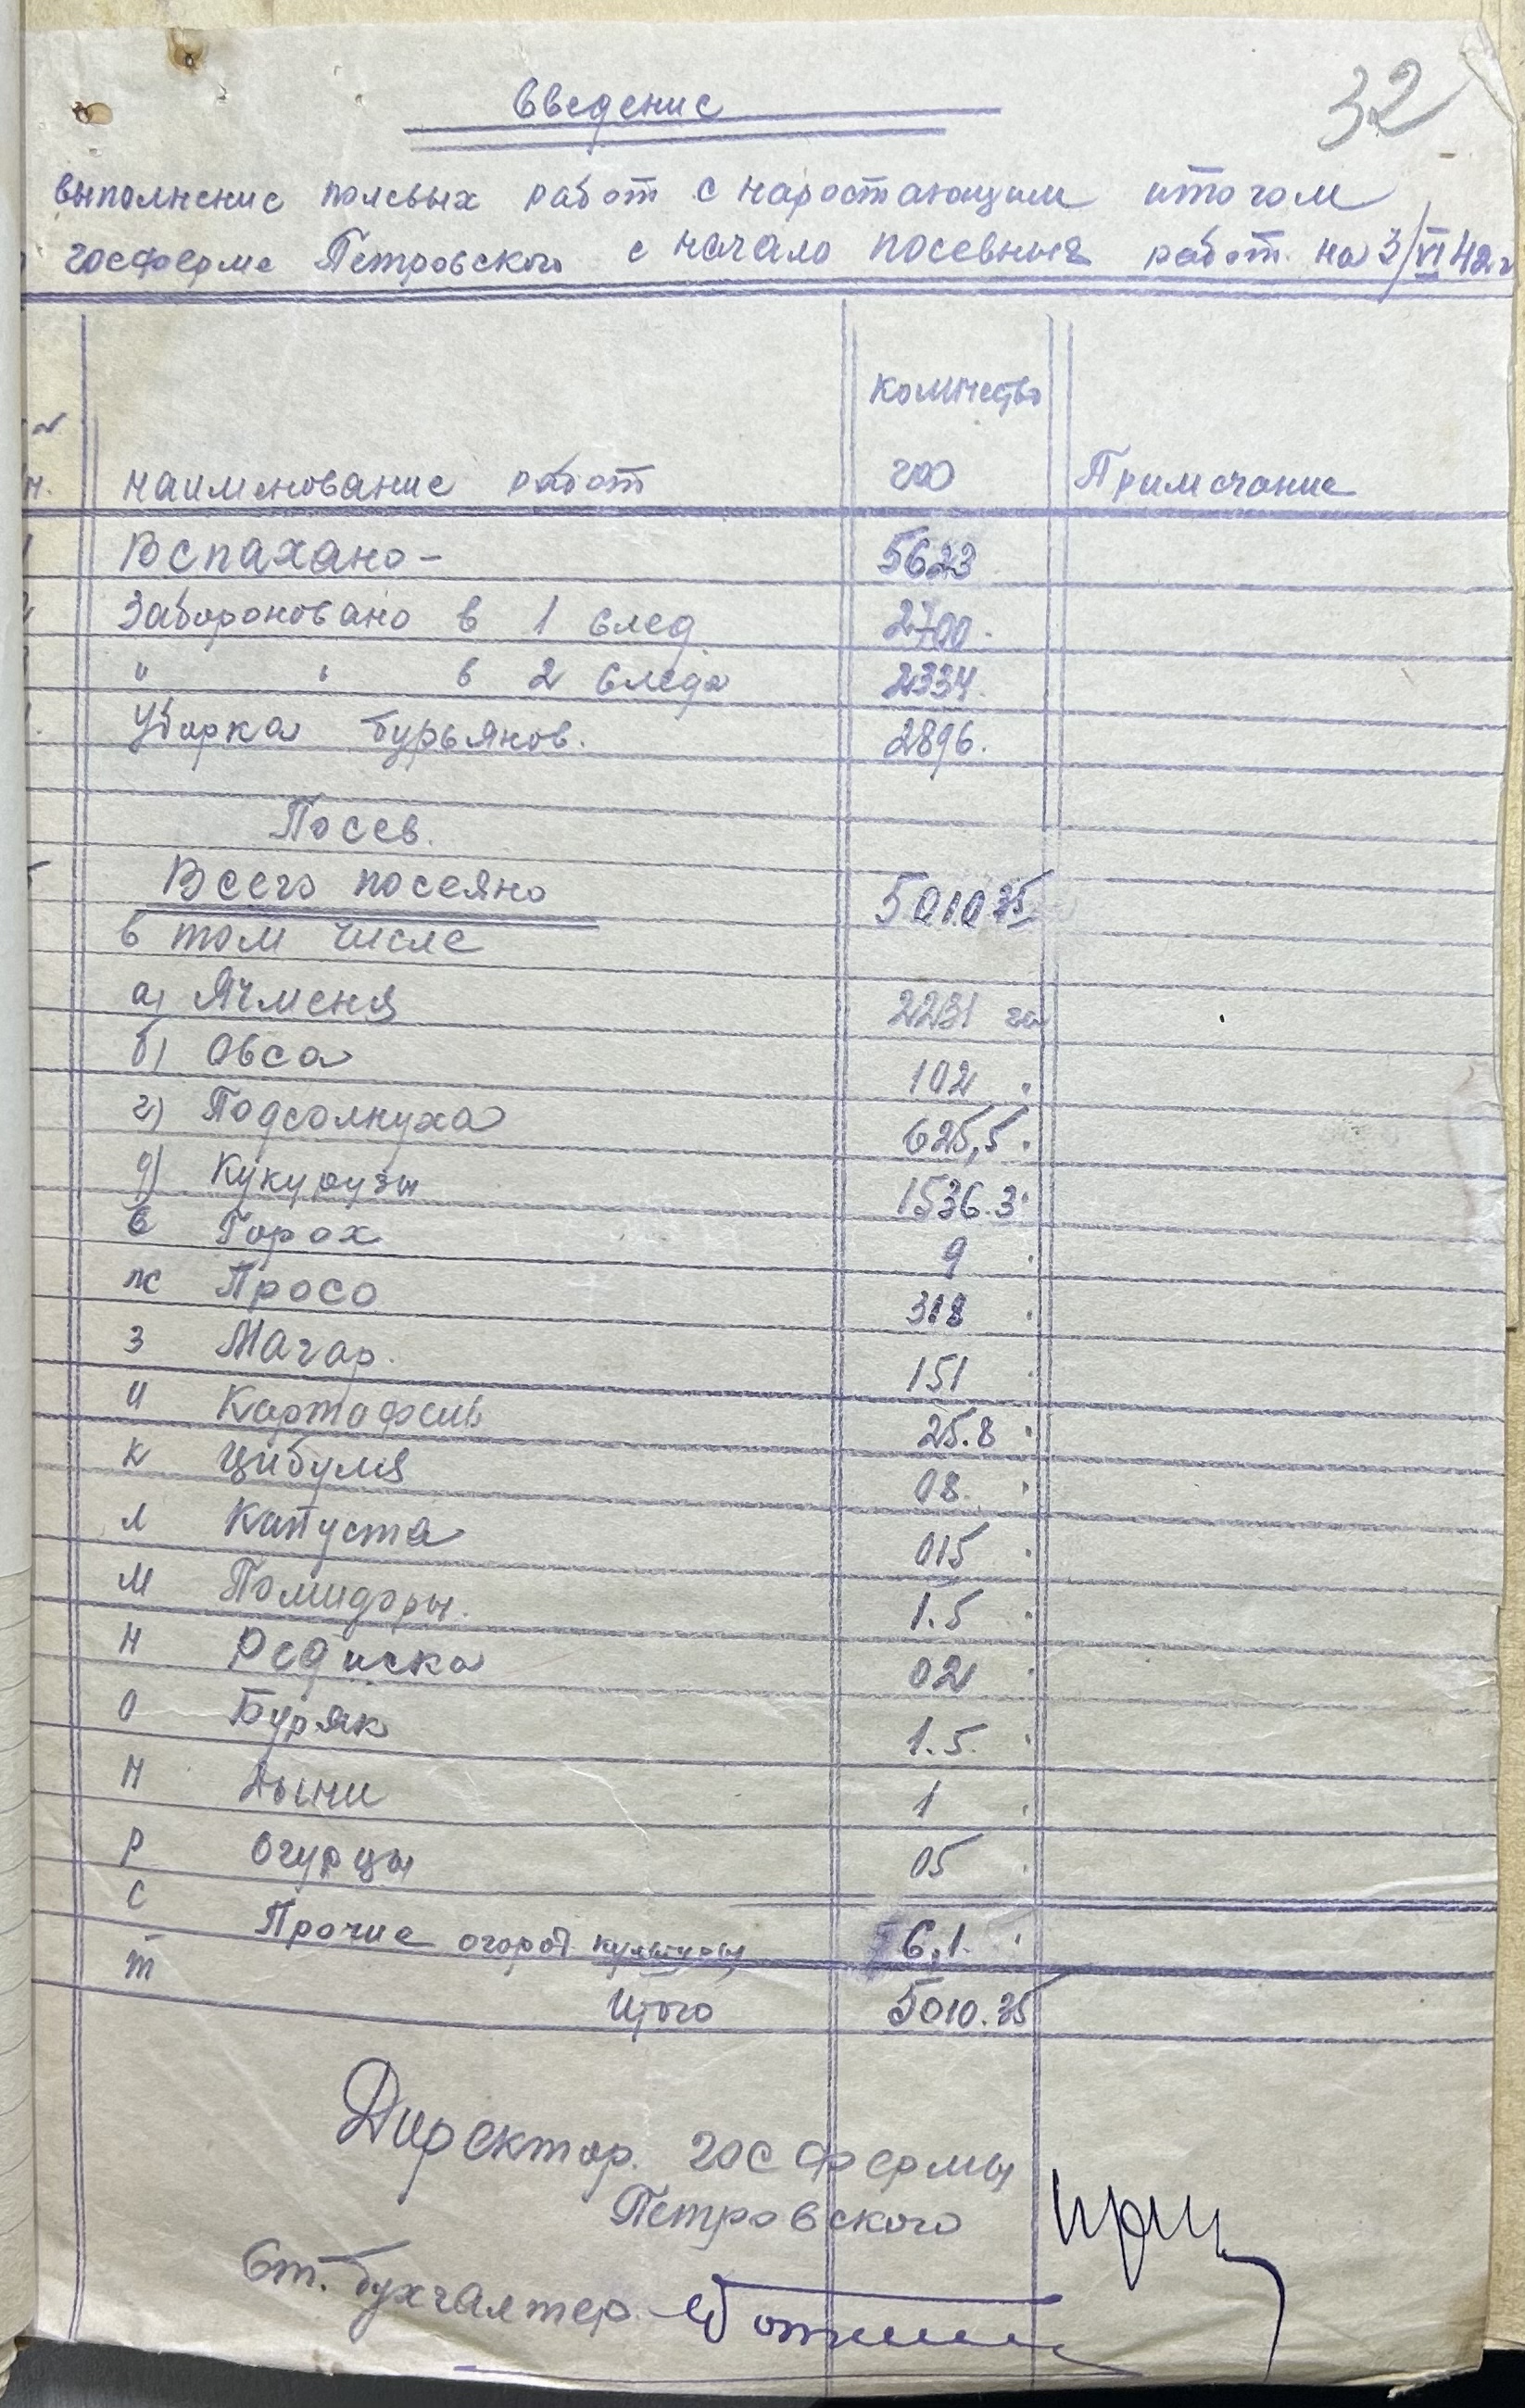 32
Введение
выполнение полевых работ с наростающим итогом
госферме Петровского с начало посевных работ на 3/VI 42 г
количество
наименование работ га Примечание
Вспахано - 5623
Забороновано в 1 след 2700.
" " в 2 следа 2334.
Уборка бурьянов. 2896.
Посев.
Всего посеяно 5010.35
в том числе
а) Ячменя 2231 га
б) Овса 102 "
г) Подсолнуха 625,5 "
д) Кукурузы 1536.3 "
е Горох 9 "
ж Просо 318 "
з Магар. 151 "
и Картофель 25.8 "
к Цибуля 08. "
л Капуста 015 "
м Помидоры. 1.5 "
н Редиска 02 "
о Буряк 1.5. "
п Дыни 1 "
р Огурцы 05 "
с Прочие огород. культуры 6,1. "
т Итого 5010.35
Директор госфермы
Петровского
Ст. бухгалтер